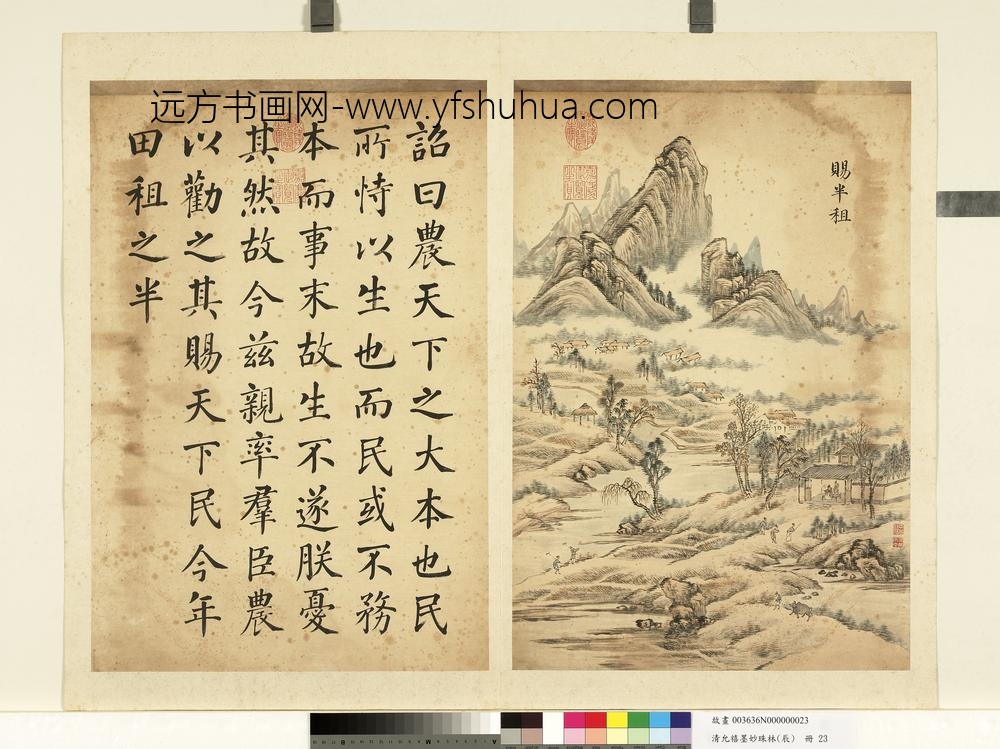 远方书画网-www.yfshuhua.com
賜半租
詔曰農天下之大本也民
所恃以生也而民或不務
本而事末故生不遂朕憂
其然故今茲親率羣臣農
以勸之其賜天下民今年
田租之半
故畫 003636N000000023
清允禧墨妙珠林(辰) 冊 23